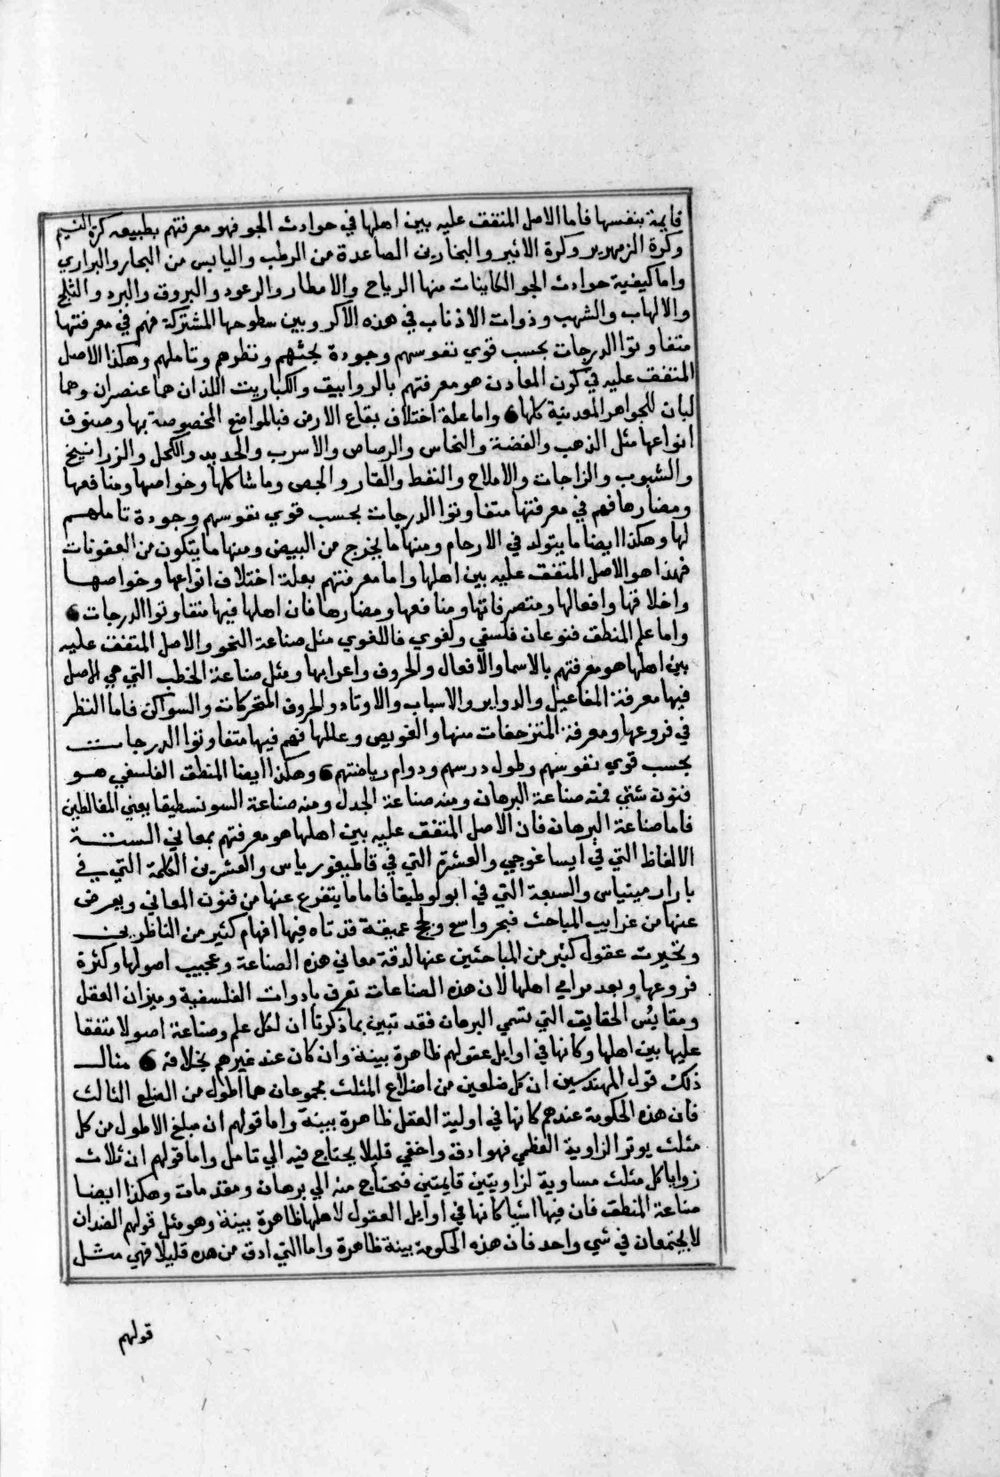 قايمة بنفسها فاما الاصل المتفق عليه بين اهلها في حوادث الجو فهو معرفتهم بطبيعه كرة النسيم
وكرة الزمهرير وكرة الاثير والبخارين الصاعدة من الرطب واليابس من البحار والبراري
واما كيفية حوادث الجو الكاينات منها الرياح والامطار والرعود والبروق والبرد والثلج
والالهاب والشهب وذوات الاذناب في هذه الاكر وبين سطوحها المشتركة فهم في معرفتها
متفاوتوا الدرجات بحسب قوي نفوسهم وجودة بحثهم ونظرهم وتاملهم وهكذا الاصل
المتفق عليه في كون المعادن هو معرفتهم بالزوابيق والكباريت اللذان هما عنصران وهما
لبان للجواهر المعدنية كلها واما علة اختلاف بقاع الارض فبالمواضع المخصوصة بها وصنوف
انواعها مثل الذهب والفضة والنحاس والرصاص والاسرب والحديد والكحل والزرانيخ
والشبوب والزاجات والاملاح والنفط والقار والجص وما شاكلها وخواصها ومنافعها
ومضارها فهم في معرفتها متفاوتوا الدرجات بحسب قوي نفوسهم وجودة تاملهم
لها وهكذا ايضا ما يتولد في الارحام ومنها ما يخرج من البيض ومنها ما يتكون من العفونات
فهذا هو الاصل المتفق عليه بين اهلها واما معرفتهم بعلة اختلاف انواعها وخواصها
واخلاقها وافعالها ومتصرفاتها ومنافعها ومضارها فان اهلها فيها متفاوتوا الدرجات
واما علم المنطق فنوعان فلسفي ولغوي فاللغوي مثل صناعة النحو والاصل المتفق عليه
بين اهلها هو معرفتهم بالاسما والافعال والحروف واعرابها ومثل صناعة الخطب التي هي الاصل
فيها معرفة المفاعيل والدواير والاسباب والاوتاد والحروف المتحركات والسواكن فاما النظر
في فروعها ومعرفة المنزحفات منها والعويص وعللها فهم فيها متفاوتوا الدرجات
بحسب قوي نفوسهم وطول درسهم ودوام رياضتهم وهكذا ايضا المنطق الفلسفي هو
فنون شتي فمنه صناعة البرهان ومنه صناعة الجدل ومنه صناعة السونسطيقا يعني المغالطين
فاما صناعة البرهان فان الاصل المتفق عليه بين اهلها هو معرفتهم بمعاني الستة
الالفاظ التي في ايساغوجي والعشرة التي في قاطيغورياس والعشرين الكلمة التي في
بارارمينياس والسبعة التي في ابولوطيقا فاما ما يتفرع عنها من فنون المعاني ويعرض
عنها من غرايب المباحث فبحر واسع ولج عميقة قد تاه فيها افهام كثير من الناظرين
وتحيرت عقول كثير من المباحثين عنها لدقة معاني هذه الصناعة وعجيب اصولها وكثرة
فروعها وبعد مرامي اهلها لان هذه الصناعات تعرف بادوات الفلسفية وميزان العقل
ومقايس الحقايق التي تسمي البرهان فقد تبين بما ذكرنا ان لكل علم وصناعة اصولا متفقا
عليها بين اهلها وكانها في اوايل عقولهم ظاهرة بينة وان كان عند غيرهم بخلافه مثال
ذلك قول المهندسين ان كل ضلعين من اضلاع المثلث مجموعان هما اطول من الضلع الثالث
فان هذه الحكومة عندهم كانها في اولية العقل ظاهرة بينة واما قولهم ان مبلغ الاطول من كل
مثلث يوتر الزاوية العظمي فهو ادق واخفي قليلا يحتاج فيه الي تامل واما قولهم ان ثلاث
زوايا كل مثلث مساوية لزاويتين قايمتين فيحتاج منه الي برهان ومقدمات وهكذا ايضا
صناعة المنطق فان فيها اشيا كانها في اوايل العقول لاهلها ظاهرة بينة وهو مثل قولهم الضدان
لا يجتمعان في شي واحد فان هذه الحكومة بينة ظاهرة واما التي ادق من هذه قليلا فهي مثل
قولهم